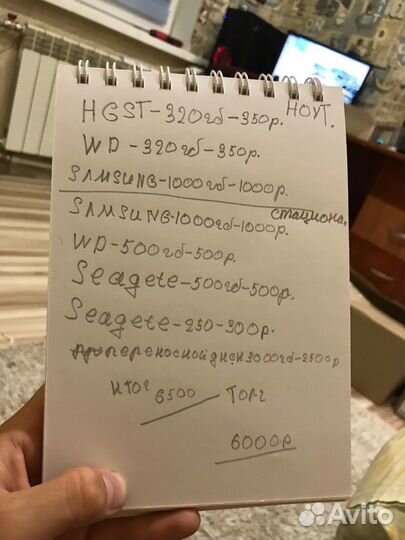 HGST-320гб-350р. НОУТ.
WD-320гб-350р.
SAMSUNG-1000гб-1000р.
СТАЦИОНА.
SAMSUNG-1000гб-1000р.
WD-500гб-500р.
Seagete-500гб-500р.
Seagete-250-300р.
переносной диск 3000гб-2500р
ИТОГ 6500 ТОРГ
6000р
Avito